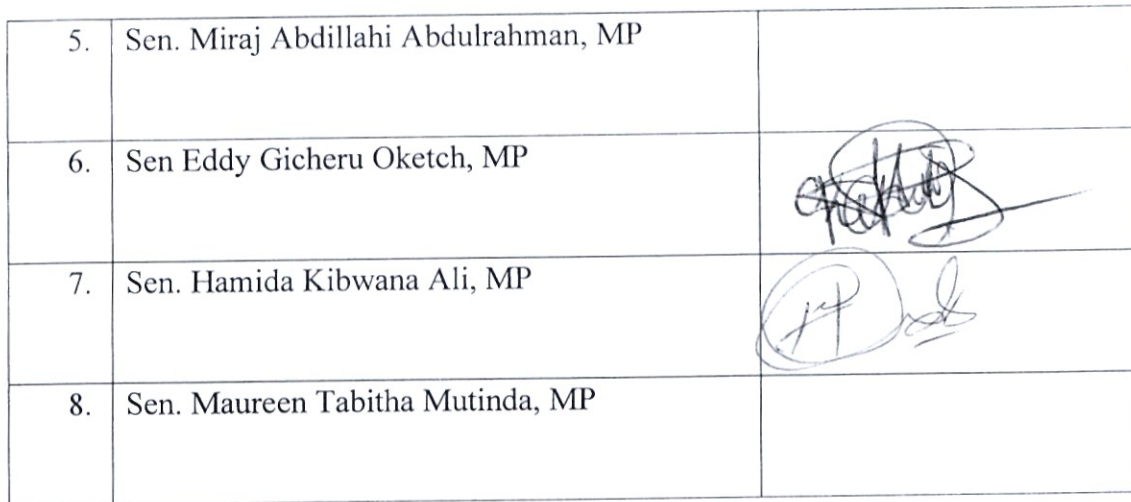 5. Sen. Miraj Abdillahi Abdulrahman, MP
6. Sen Eddy Gicheru Oketch, MP
7. Sen. Hamida Kibwana Ali, MP
8. Sen. Maureen Tabitha Mutinda, MP